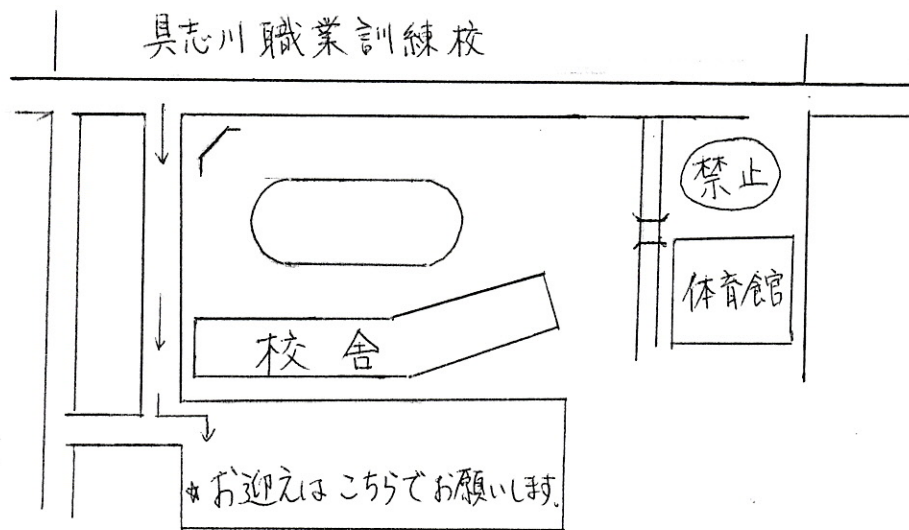 具志川職業訓練校
禁止
体育館
校舎
☆お迎えはこちらでお願いします。